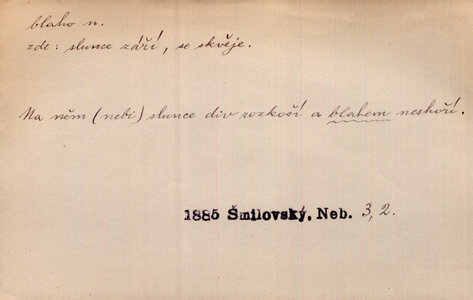 blaho n.
zde: slunce září, se skvěje.
Na něm (nebi) slunce div rozkoší a blahem neshoří.
1885 Šmilovský, Neb. 3, 2.